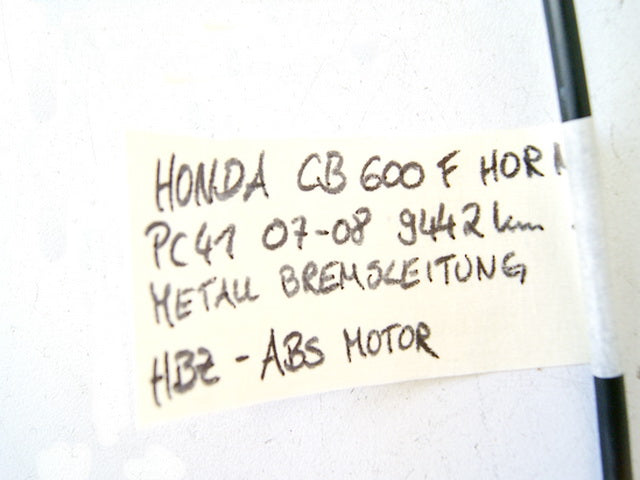 HONDA CB 600 F HORN
PC41 07-08 9442 km
METALL BREMSLEITUNG
HBZ - ABS MOTOR